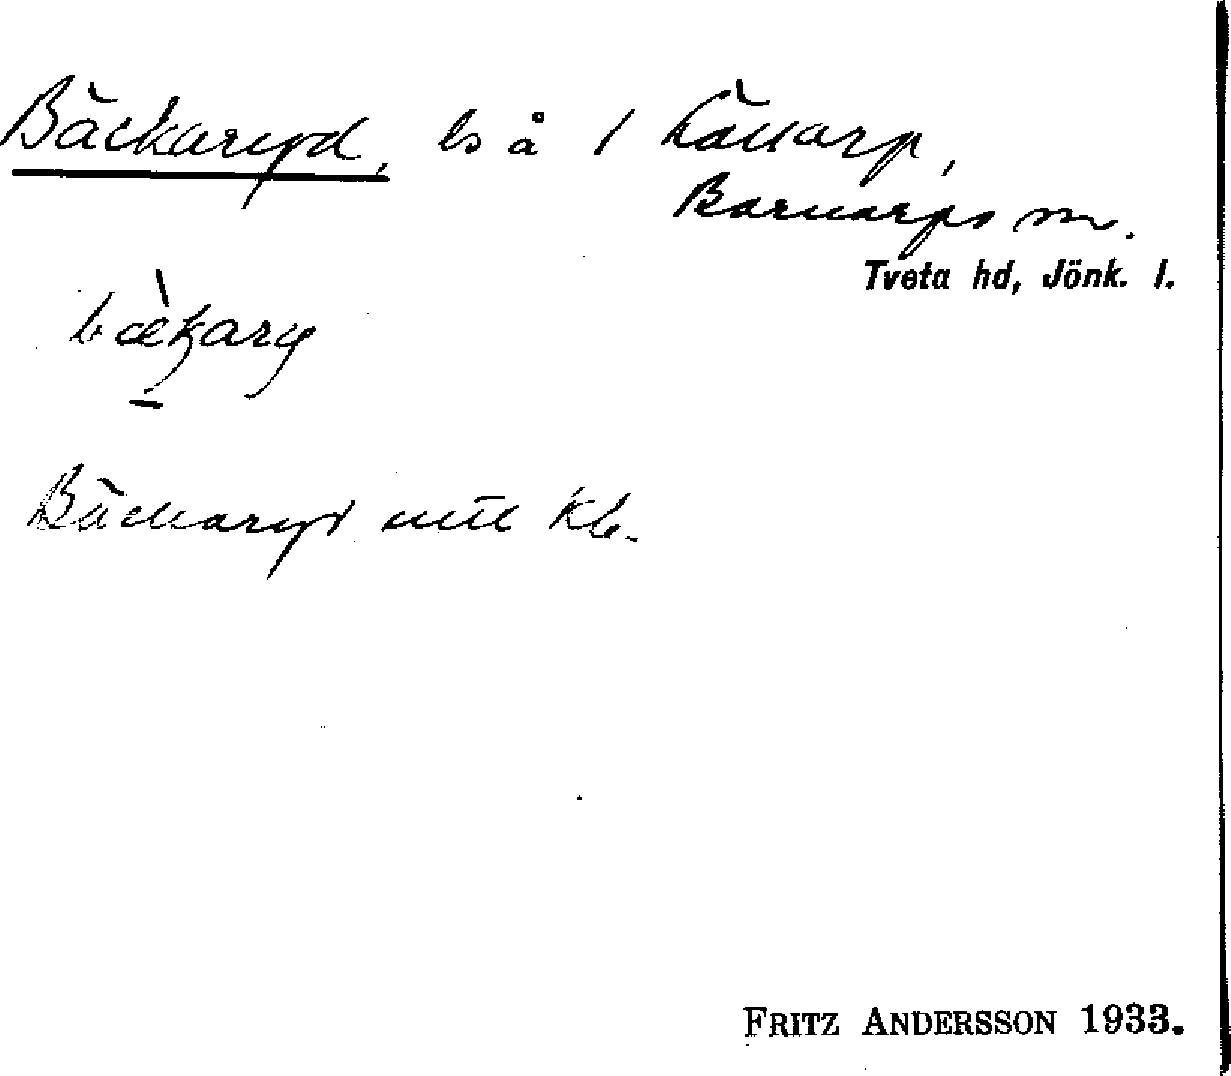 Bäckaryd, ls å 1 Kållarp,
Barnarps sn.
Tveta hd, Jönk. l.
bækary
Bäckaryd utit Kb.
FRITZ ANDERSSON 1933.